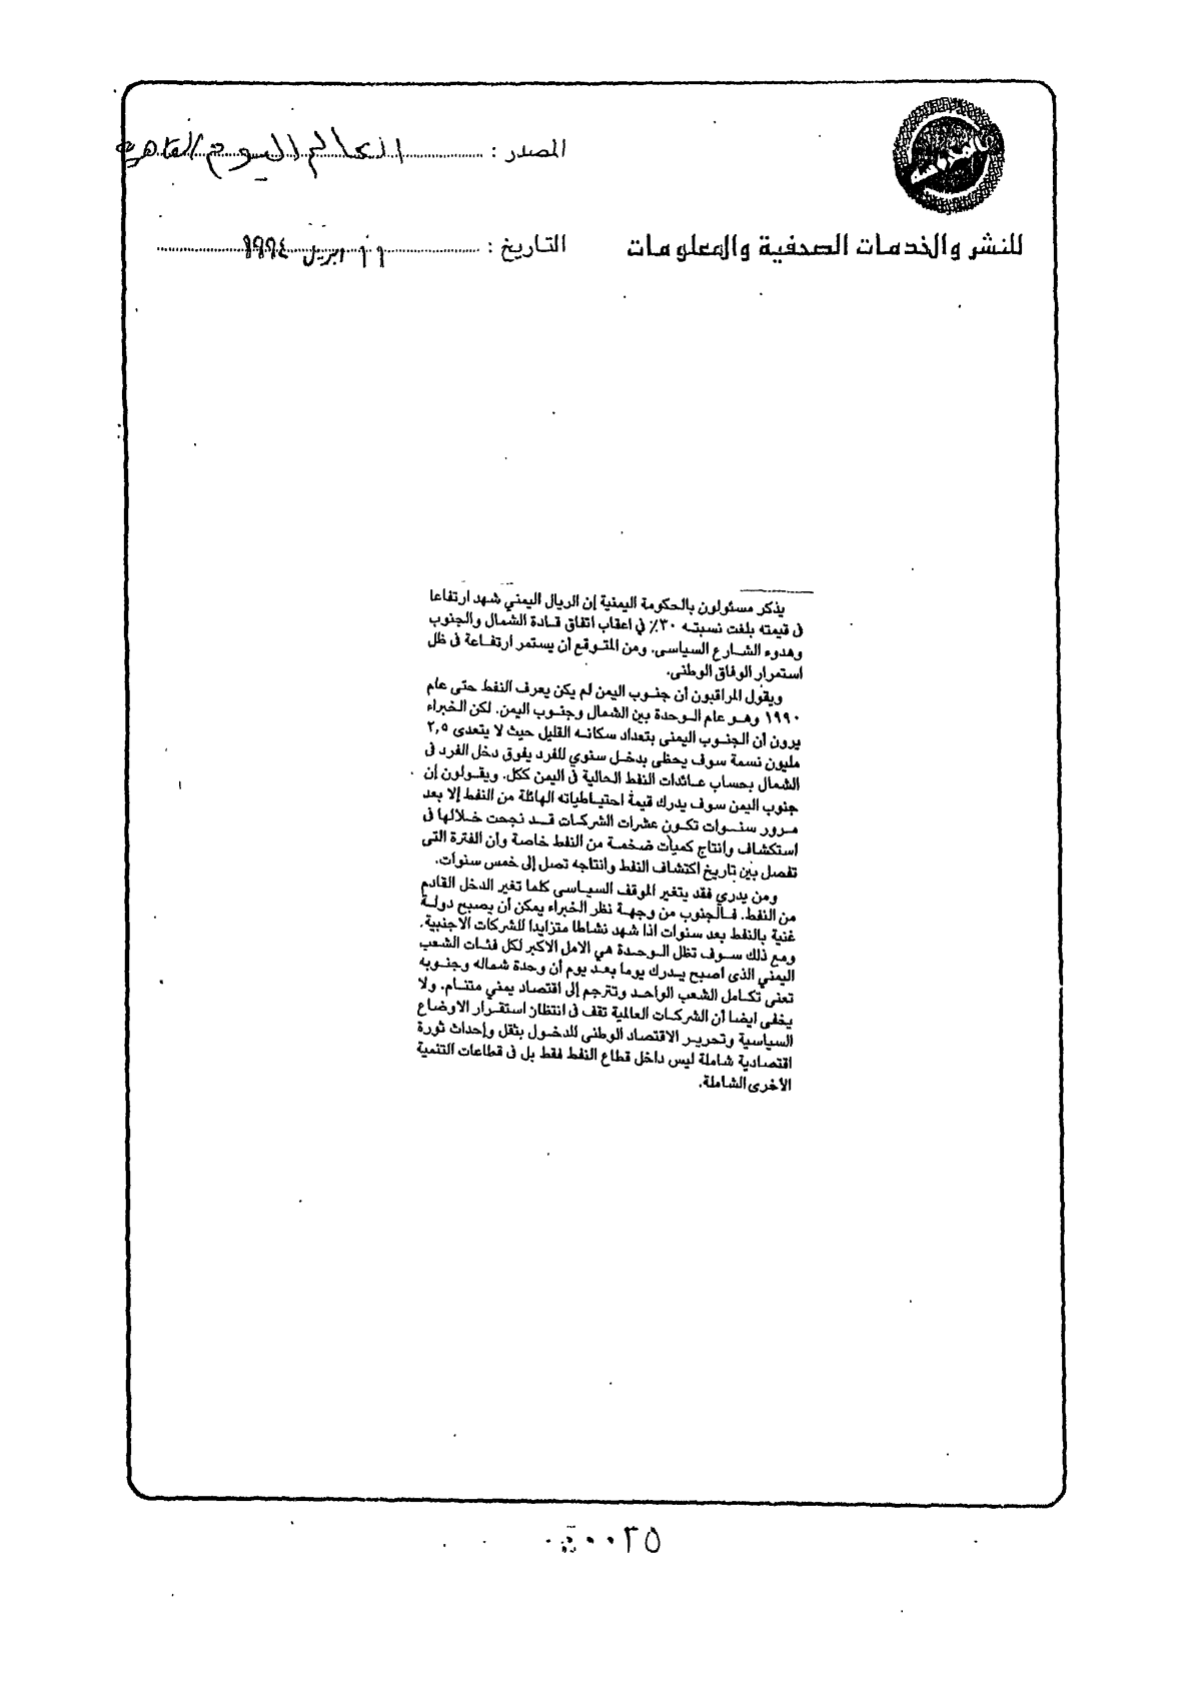 المصدر : العالم اليوم القاهرية
للنشر والخدمات الصحفية والمعلومات
التاريخ : ١١ ابريل ١٩٩٤
يذكر مسئولون بالحكومة اليمنية إن الريال اليمني شهد ارتفاعا
في قيمته بلغت نسبته ٣٠٪ في اعقاب اتفاق قادة الشمال والجنوب
وهدوء الشارع السياسى. ومن المتوقع أن يستمر ارتفاعة فى ظل
استمرار الوفاق الوطنى.
ويقول المراقبون أن جنوب اليمن لم يكن يعرف النفط حتى عام
١٩٩٠ وهو عام الوحدة بين الشمال وجنوب اليمن. لكن الخبراء
يرون أن الجنوب اليمنى بتعداد سكانه القليل حيث لا يتعدى ٢,٥
مليون نسمة سوف يحظى بدخل سنوي للفرد يفوق دخل الفرد فى
الشمال بحساب عائدات النفط الحالية فى اليمن ككل. ويقولون إن
جنوب اليمن سوف يدرك قيمة احتياطياته الهائلة من النفط إلا بعد
مرور سنوات تكون عشرات الشركات قد نجحت خلالها فى
استكشاف وانتاج كميات ضخمة من النفط خاصة وأن الفترة التى
تفصل بين تاريخ اكتشاف النفط وانتاجه تصل إلى خمس سنوات.
ومن يدري فقد يتغير الموقف السياسى كلما تغير الدخل القادم
من النفط. فالجنوب من وجهة نظر الخبراء يمكن أن يصبح دولة
غنية بالنفط بعد سنوات اذا شهد نشاطا متزايدا للشركات الاجنبية.
ومع ذلك سوف تظل الوحدة هي الامل الاكبر لكل فئات الشعب
اليمني الذى اصبح يدرك يوما بعد يوم أن وحدة شماله وجنوبه
تعنى تكامل الشعب الواحد وتترجم إلى اقتصاد يمني متنام. ولا
يخفى ايضا أن الشركات العالمية تقف فى انتظار استقرار الاوضاع
السياسية وتحرير الاقتصاد الوطنى للدخول بثقل وإحداث ثورة
اقتصادية شاملة ليس داخل قطاع النفط فقط بل فى قطاعات التنمية
الأخرى الشاملة.